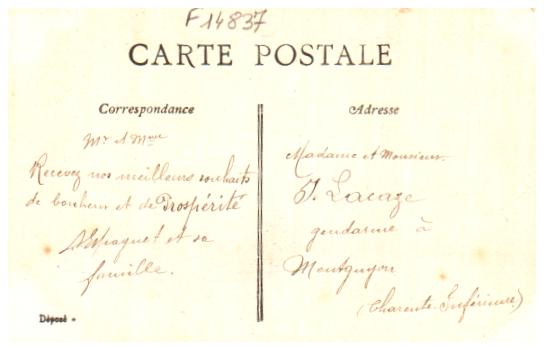 F 14837
CARTE POSTALE
Correspondance
Mr et Mme
Recevez nos meilleurs souhaits
de bonheur et de Prospérité
et sa
famille.
Déposé
Adresse
Madame et Monsieur
J. Lacaze
gendarme à
Montguyon
(Charente-Inférieure)